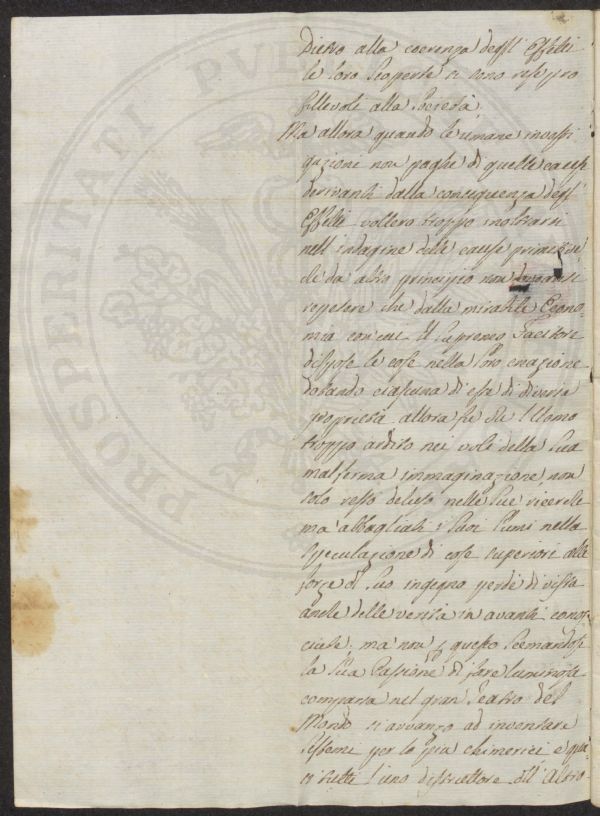 Dietro alla coerenza degl' Effetti
le loro scoperte si sono rese pro
fittevoli alla Società.
Ma allora quando le umane investi
gazioni non paghe di quelle cause
derivanti dalla conseguenza degl'
Effetti vollero troppo inoltrarsi
nell' indagine delle cause prime,
le da altro principio non
ripetere che dalla mirabile Econo
mia con cui il supremo Fattore
dispose le cose nella loro creazione
dotando ciascuna di esse di diversa
proprietà allora fu che l'Uomo
troppo ardito nei voli della sua
mal ferma immaginazione, non
solo restò deluso nelle sue ricerche
ma abbagliati i suoi lumi nella
speculazione di cose superiori alle
forze di suo ingegno perdè di vista
anche delle verità in avanti conos
ciute, ma non p questo scemandosi
la sua Passione di fare luminosa
comparsa nel gran Teatro del
Mondo si avanzò ad inventare
sistemi per lo più chimerici e qua
si tutti l'uno distruttore dell' Altro
PROSPERITATI PVB